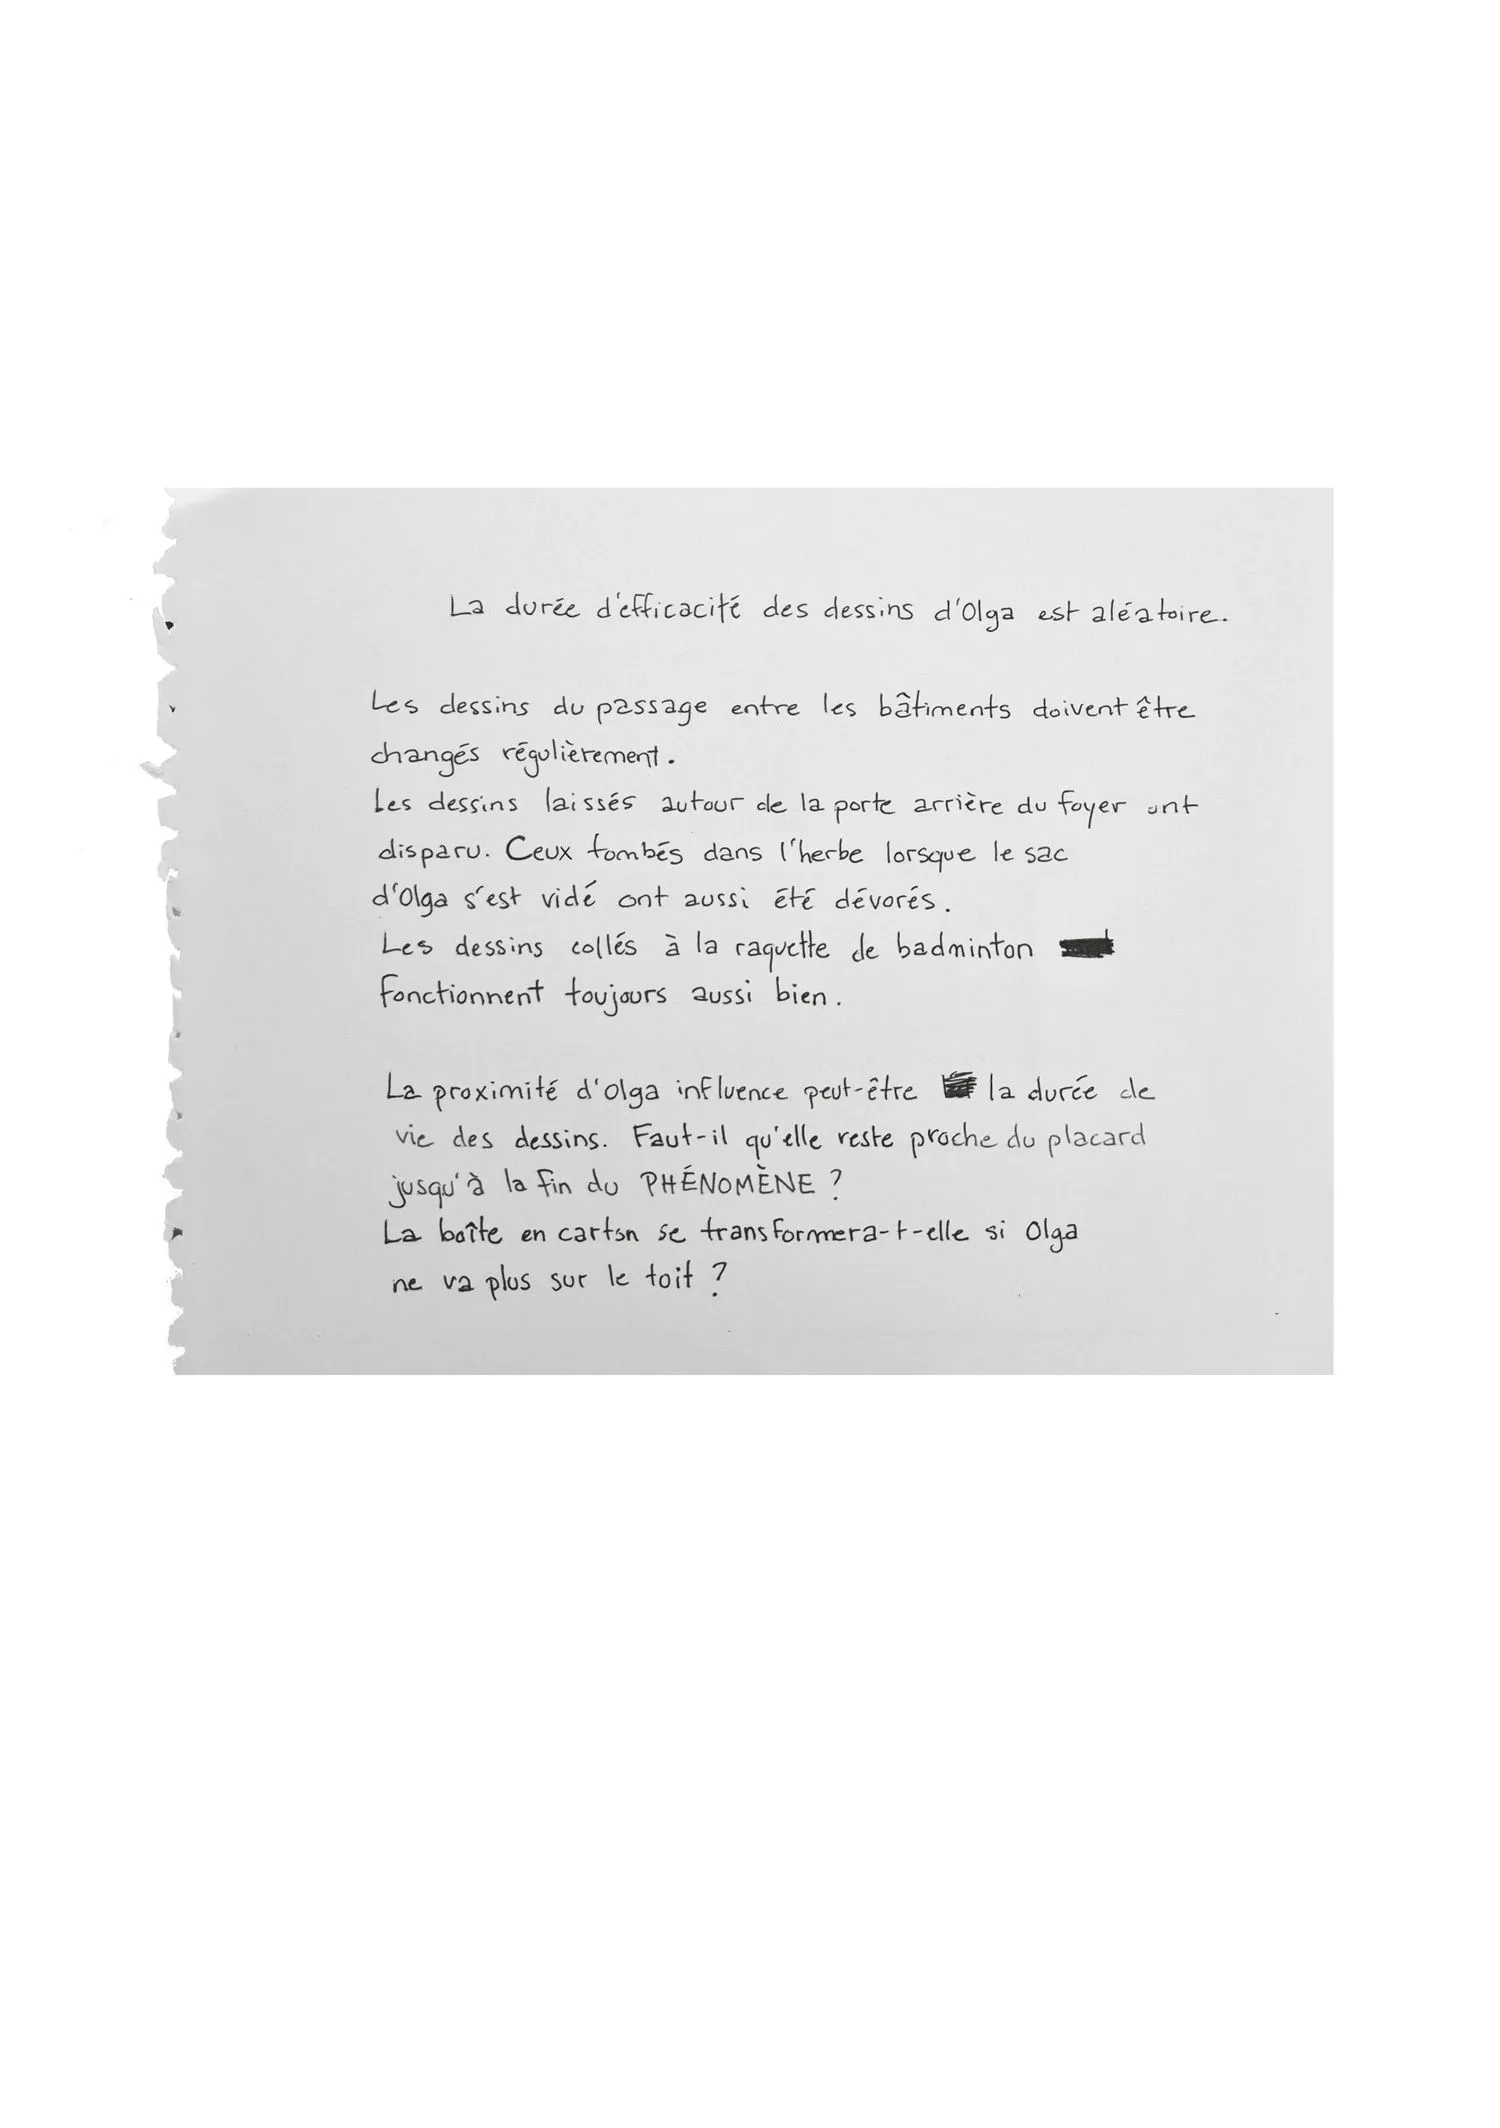 La durée d'efficacité des dessins d'Olga est aléatoire.
Les dessins du passage entre les bâtiments doivent être
changés régulièrement.
Les dessins laissés autour de la porte arrière du foyer ont
disparu. Ceux tombés dans l'herbe lorsque le sac
d'Olga s'est vidé ont aussi été dévorés.
Les dessins collés à la raquette de badminton
fonctionnent toujours aussi bien.
La proximité d'Olga influence peut-être la durée de
vie des dessins. Faut-il qu'elle reste proche du placard
jusqu'à la fin du PHÉNOMÈNE ?
La boîte en carton se transformera-t-elle si Olga
ne va plus sur le toit ?